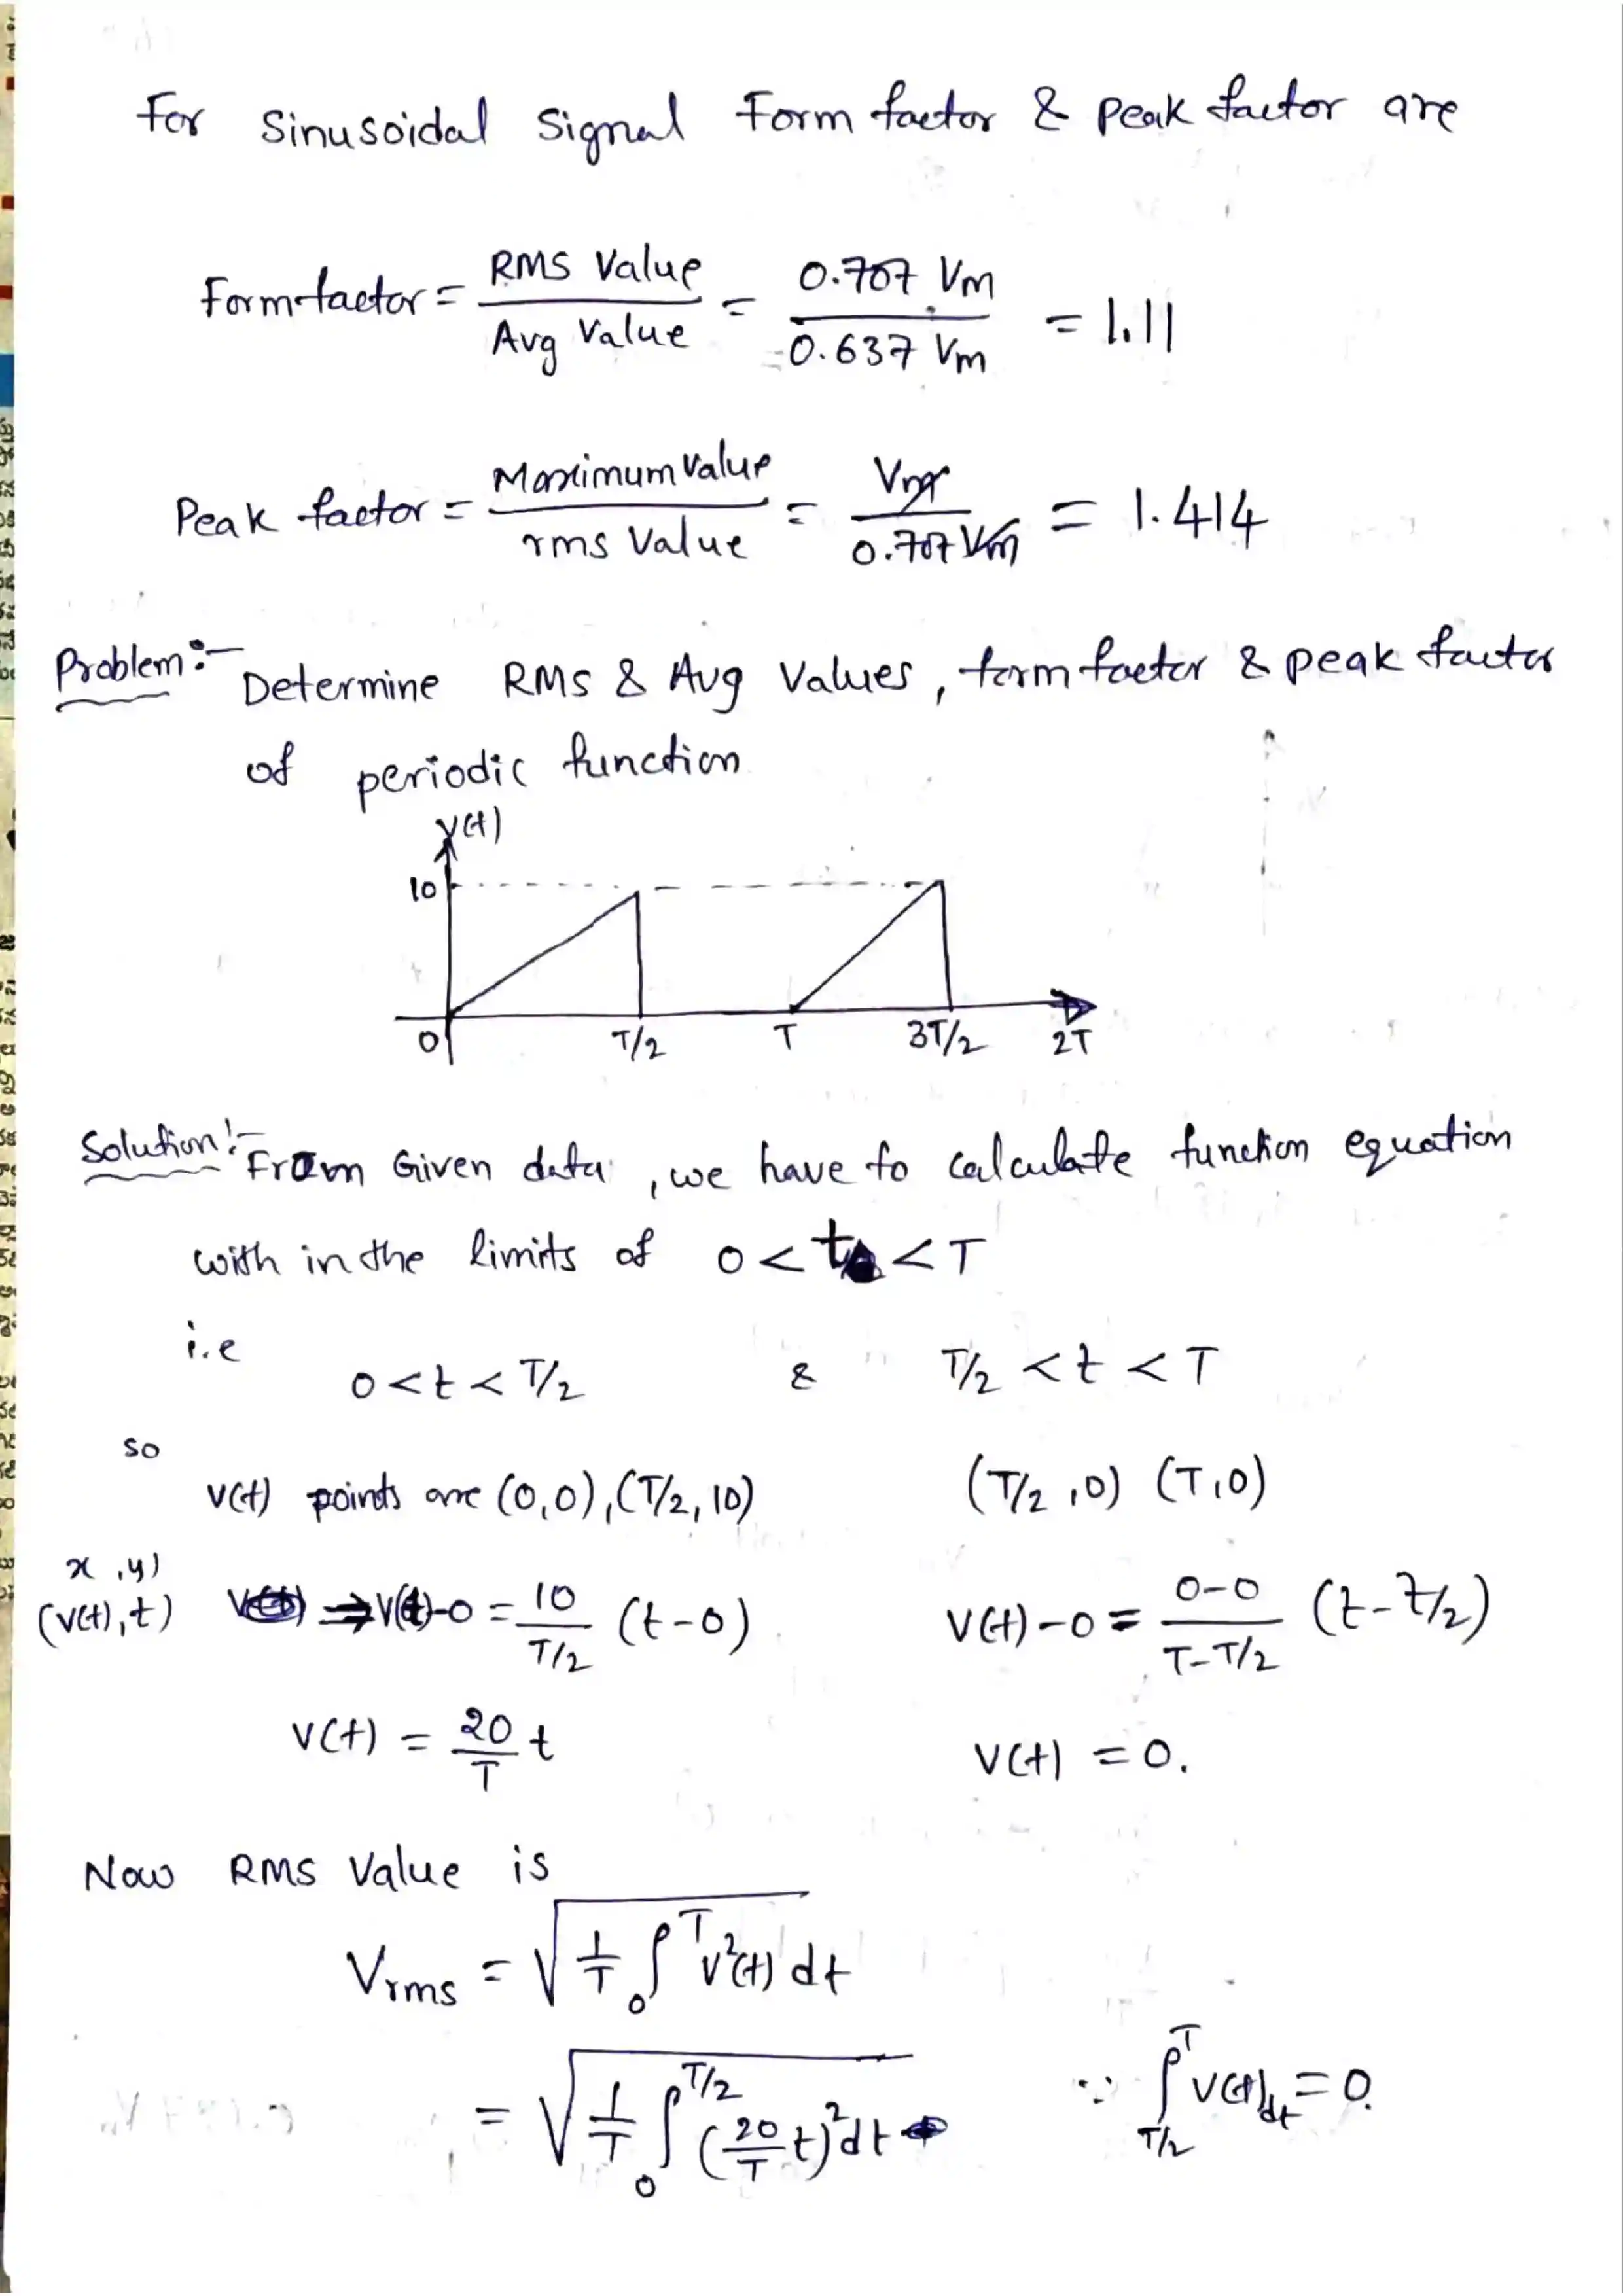 For Sinusoidal Signal Form factor & Peak factor are
Form factor = RMS Value / Avg Value = 0.707 Vm / 0.637 Vm = 1.11
Peak factor = Maximum Value / rms Value = Vm / 0.707 Vm = 1.414
Problem:- Determine RMS & Avg Values, form factor & peak factor
of periodic function
V(t)
10
0 T/2 T 3T/2 2T
Solution:- From Given data, we have to calculate function equation
with in the limits of 0 < t < T
i.e 0 < t < T/2 & T/2 < t < T
so
V(t) points are (0,0), (T/2, 10) (T/2, 0) (T, 0)
x, y)
(V(t), t) ⇒ V(t)-0 = 10 / T/2 (t-0) V(t)-0 = 0-0 / T-T/2 (t-T/2)
V(t) = 20/T t V(t) = 0.
Now RMS Value is
Vrms = √ 1/T ∫₀ᵀ v²(t) dt
= √ 1/T ∫₀^T/2 (20/T t)² dt ∵ ∫_T/2^T V(t) dt = 0.